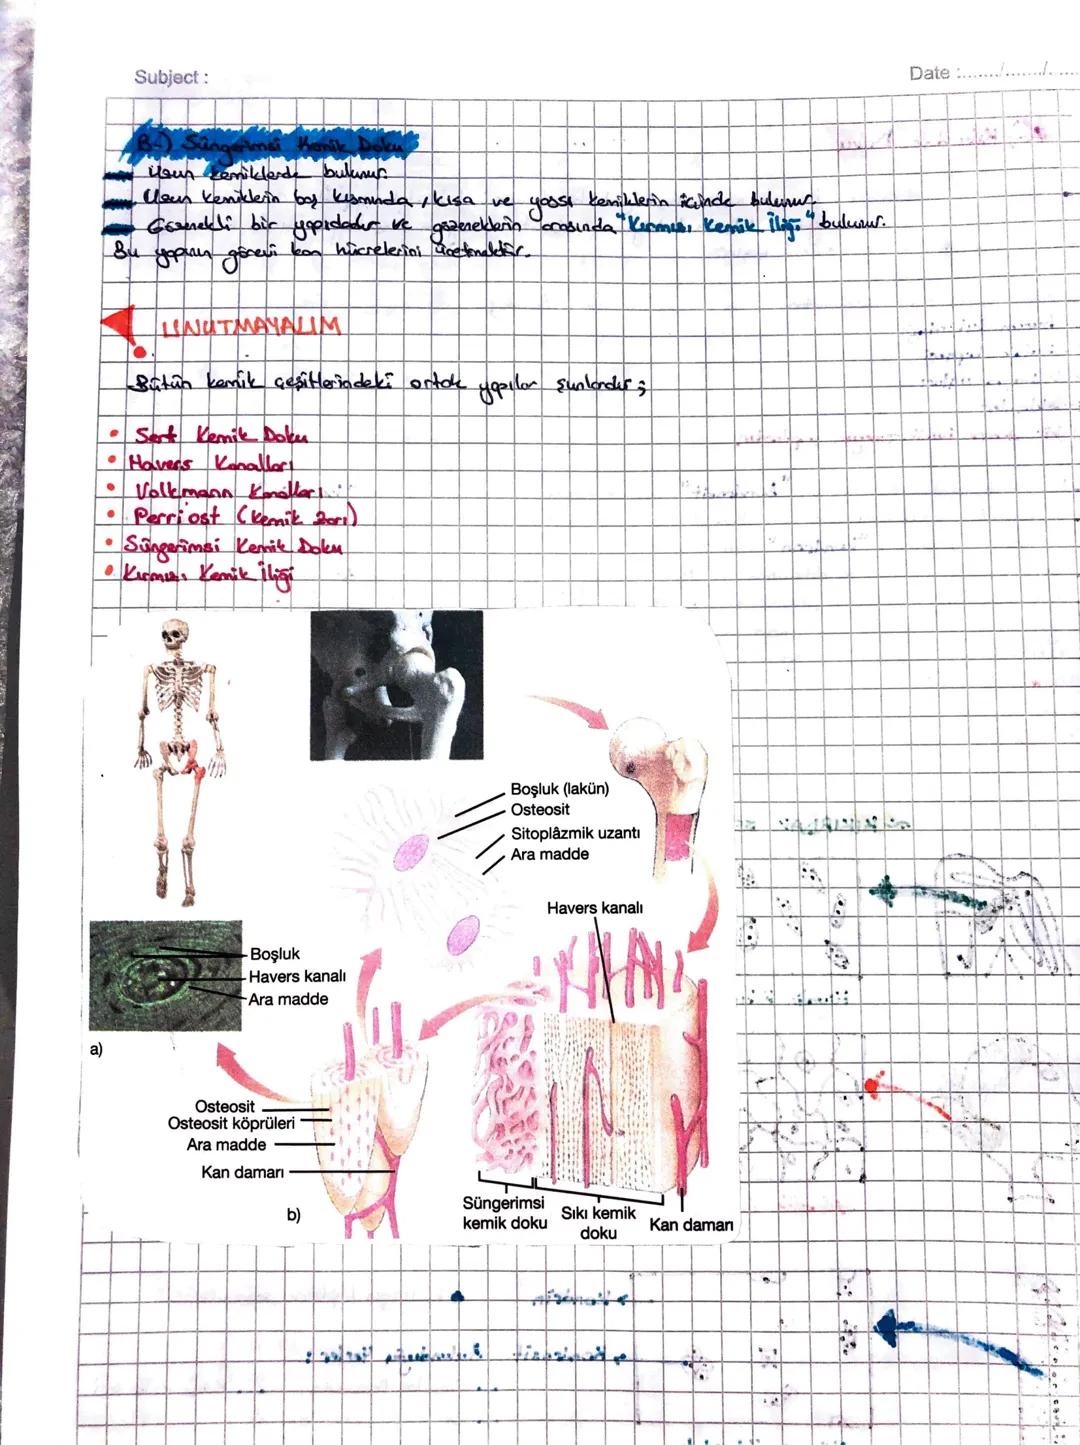 Subject :
Date :......../......../........
B-) Süngerimsi Kemik Doku
Uzun kemiklerde bulunur.
Uzun kemiklerin baş kısmında, kısa ve yassı kemiklerin içinde bulunur.
Gözenekli bir yapıdadır ve gözeneklerin arasında "Kırmızı Kemik İliği" bulunur.
Bu yapının görevi kan hücrelerini üretmektir.
UNUTMAYALIM
Bütün kemik çeşitlerindeki ortak yapılar şunlardır;
• Sert Kemik Doku
• Havers Kanalları
• Volkmann Kanalları
• Perriost (Kemik zarı)
• Süngerimsi Kemik Doku
• Kırmızı Kemik İliği
Boşluk (lakün)
Osteosit
Sitoplâzmik uzantı
Ara madde
Havers kanalı
Boşluk
Havers kanalı
Ara madde
a)
Osteosit
Osteosit köprüleri
Ara madde
Kan damarı
b)
Süngerimsi
kemik doku
Sıkı kemik
doku
Kan damarı